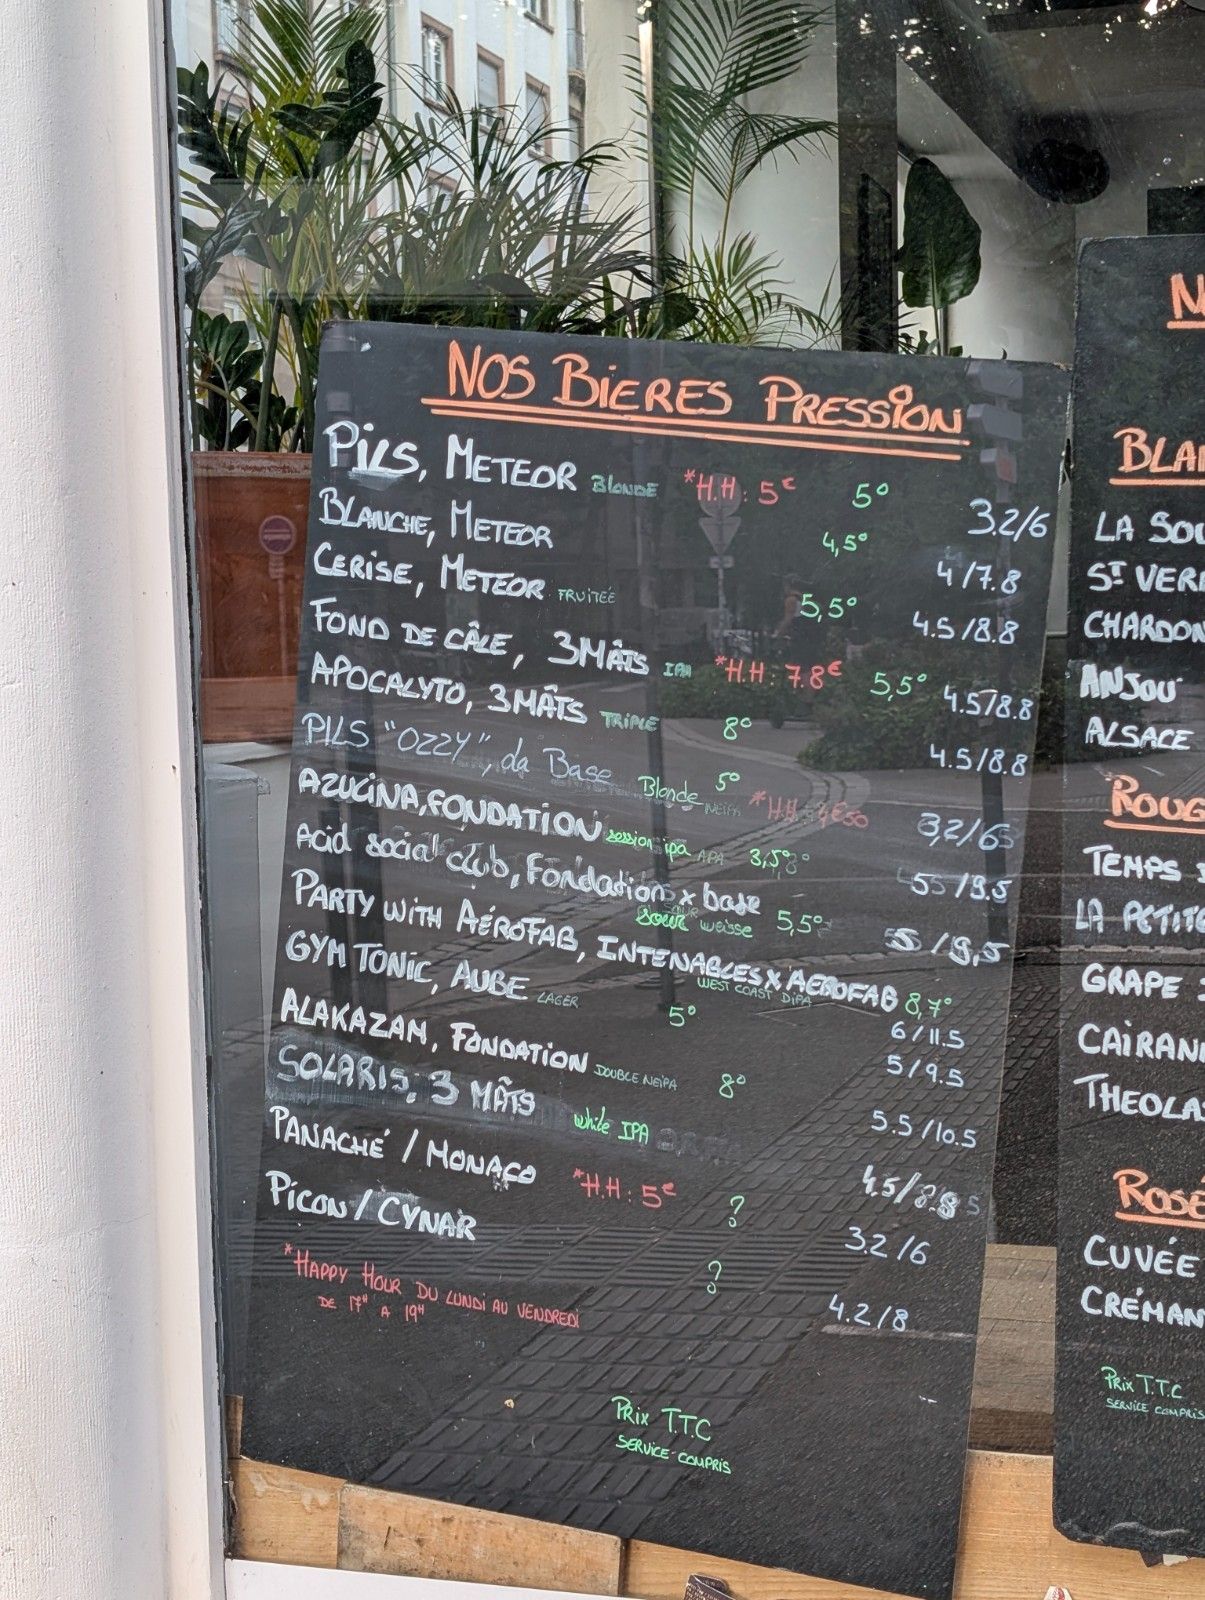 NOS BIERES PRESSION
PILS, METEOR BLONDE *H.H: 5€ 5° 3.2/6
BLANCHE, METEOR 4,5° 4/7.8
CERISE, METEOR FRUITÉE 5,5° 4.5/8.8
FOND DE CÂLE, 3MÂTS IPA *H.H: 7.8€ 5,5° 4.5/8.8
APOCALYTO, 3MÂTS TRIPLE 8° 4.5/8.8
PILS "OZZY", da Base Blonde 5° *H.H 3,2/6
AZUCINA, FONDATION session ipa 3,5° 5/9.5
Acid social club, Fondation x base Sour weisse 5,5° 5/9,5
PARTY WITH AÉROFAB, INTENABLES X AEROFAB WEST COAST DIPA 8,7° 6/11.5
GYM TONIC, AUBE LAGER 5° 5/9.5
ALAKAZAM, FONDATION DOUBLE NEIPA 8° 5.5/10.5
SOLARIS, 3 MÂTS white IPA 4,5/8.8
PANACHÉ / MONACO *H.H: 5€ ? 3.2/6
PICON / CYNAR ? 4.2/8
*HAPPY HOUR DU LUNDI AU VENDREDI
DE 17H A 19H
PRIX T.T.C
SERVICE COMPRIS
LA
ST
CHARDON
ANJOU
ALSACE
TEMPS
LA PETITE
GRAPE
THEOLA
ROSÉ
CUVÉE
PRIX T.T.C
SERVICE COMPRIS